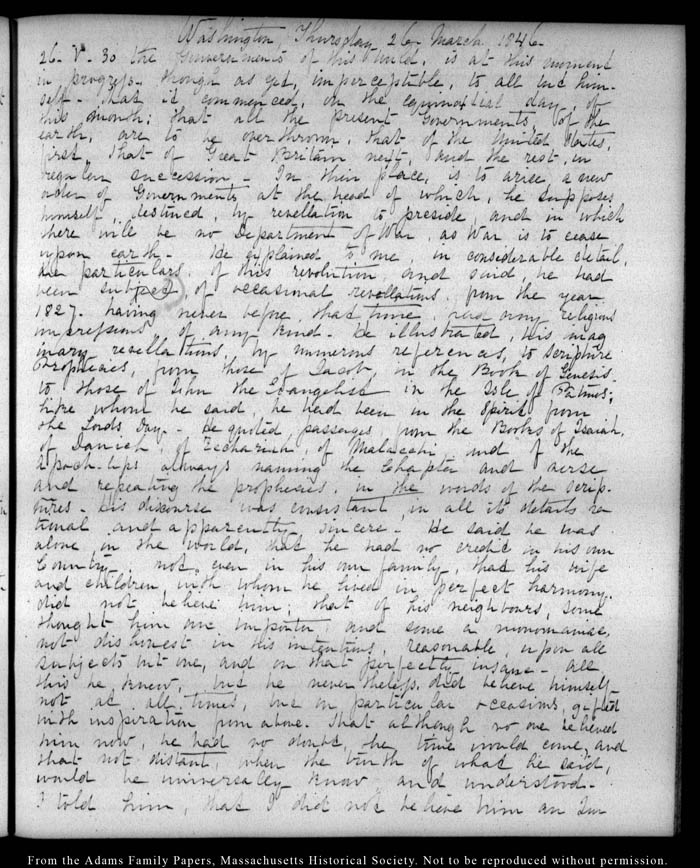 Washington, Thursday 26. March 1846.
26. V. 30 the Governments of this World, is at this moment
in progress, though as yet, imperceptible, to all but him-
self. that it commenced, on the equinoctial day, of
this month; that all the present Governments of the
earth, are to be overthrown, that of the United States,
first, that of Great Britain next, and the rest, in
regular succession. In their place, is to arise, a new
order of Governments, at the head of which, he supposes
himself, destined, by revellation to preside, and in which
there will be no Department of War, as War is to cease
upon earth. He explained to me, in considerable detail,
the particulars, of this revolution, and said, he had
been subject, of occasional revellations, from the year
1827. having never before that time, had any religious
impressions of any kind. He illustrated, his imag
inary revellations, by numerous references, to Scripture
Prophecies, from those of Jacob, in the Book of Genesis
to those of John the Evangelist in the Isle of Patmos;
like whom he said, he had been in the Spirit from
the Lord's Day. He quoted passages, from the Books of Isaiah,
of Daniel, of Zechariah, of Malacchi, and of the
Apoch-lips always naming the Chapter and verse
and repeating the prophecies, in the words of the Scrip-
tures. His discourse was consistant, in all its details ra
tional and apparently sincere. He said he was
alone, in the world, that he had no credit in his own
Country, not, even in his own family, that his wife
and children, with whom he lived in perfect harmony,
did not, believe him; that of his neighbours, some
thought him an impostor, and some a monomaniac,
not dishonest in his intentions, reasonable, upon all
subjects but one, and on that perfectly insane. All
this he knew, but he nevertheless, did believe himself
not at all times, but on particular occasions, gifted
with inspiration from above. That although no one believed
him now, he had no doubt, the time would come, and
that not distant, when the truth of what he said,
would be universally know and understood.
I told him, that I did not believe him an Im
From the Adams Family Papers, Massachusetts Historical Society. Not to be reproduced without permission.